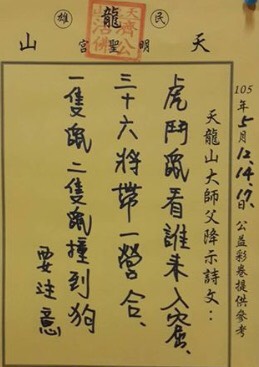 民龍雄
天明聖宮山
天山濟公活佛
105年5月12.14.17日 公益彩卷提供參考
天龍山大師父降示詩文：
虎鬥鼠看誰未入窟、
三十六將帶一營合、
一隻鼠二隻鼠撞到狗
要注意